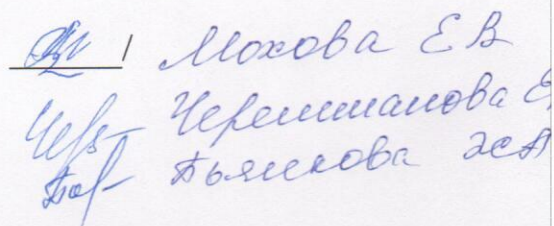 / Мохова Е В
Черемшанова Е
Бьянкова Ж А